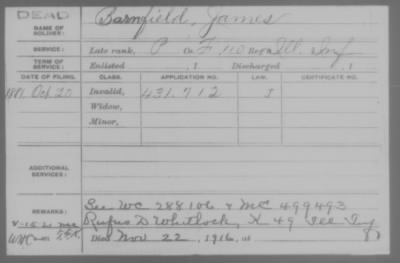 DEAD
NAME OF SOLDIER: Barnfield, James
SERVICE: Late rank, P Co. F, 110 Reg't Ill. Inf
TERM OF SERVICE: Enlisted , 1 Discharged , 1
DATE OF FILING. CLASS. APPLICATION NO. LAW. CERTIFICATE NO.
1881 Oct 20 Invalid, 431.712 J
Widow,
Minor,
ADDITIONAL SERVICES:
REMARKS: See WC 288106 & MC 499493
Rufus D Whitlock, K 49 Ill Inf
Died Nov 22, 1916, at